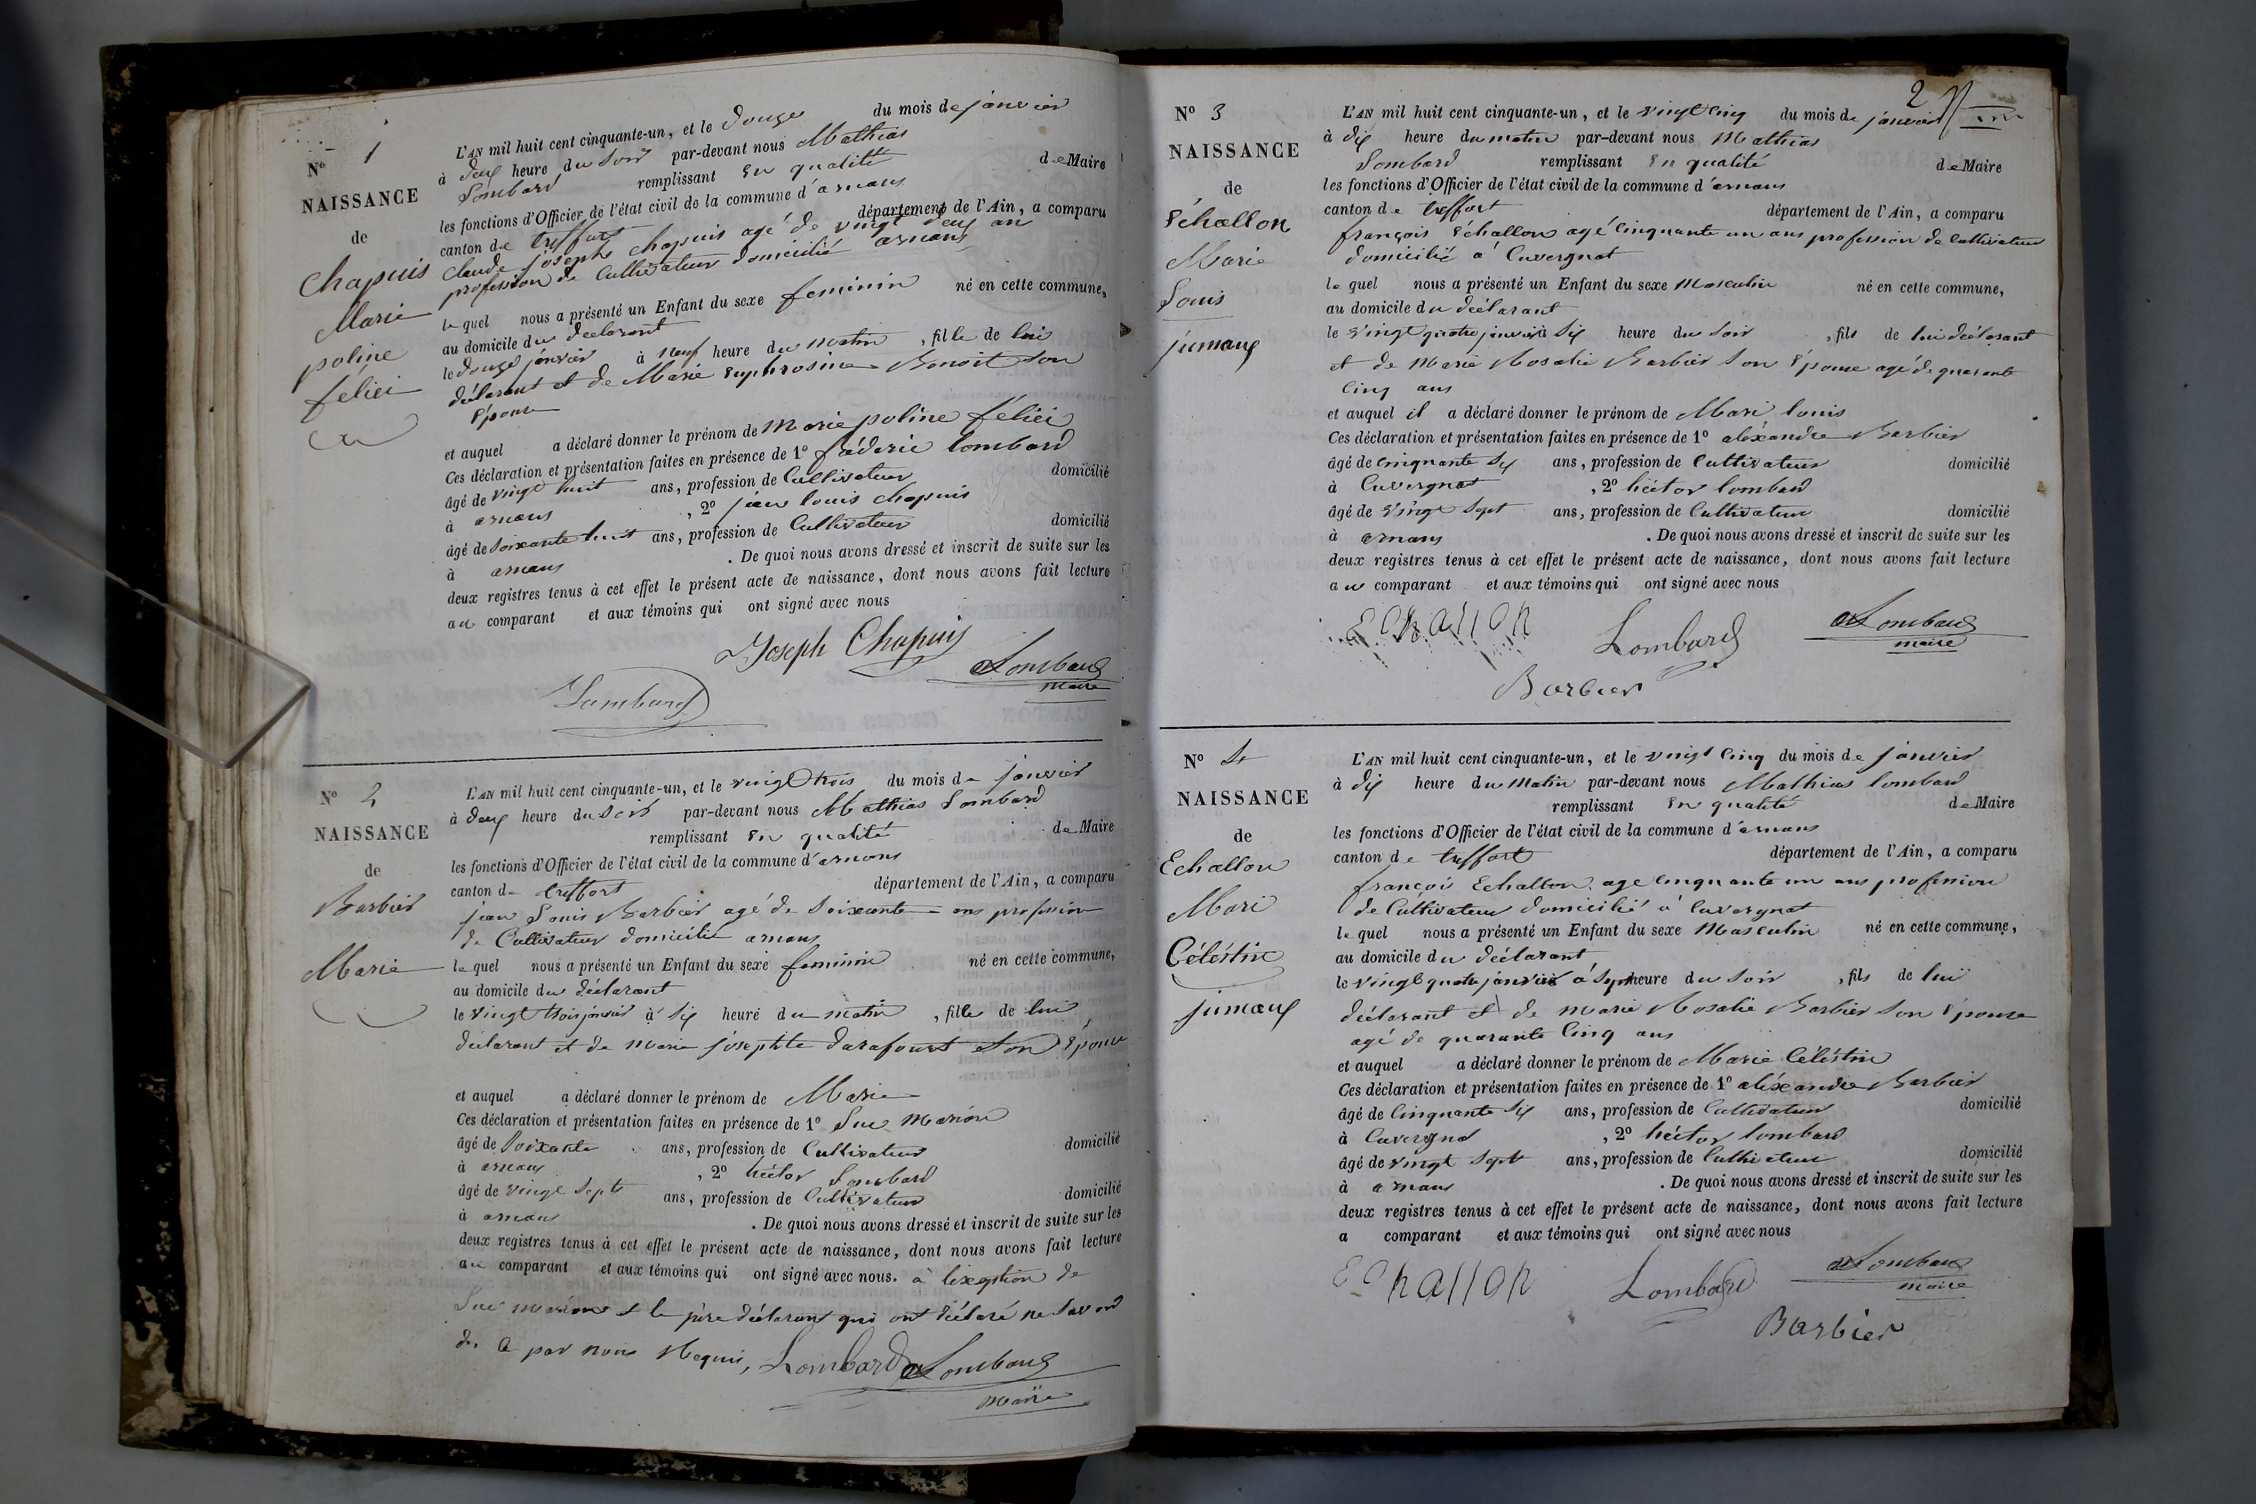 N° 1
NAISSANCE
de
Chapuis
Marie
poline
félici
L'AN mil huit cent cinquante-un, et le douze du mois de janvier
à deux heure du soir par-devant nous Mathias
Lombard remplissant en qualité de Maire
les fonctions d'Officier de l'état civil de la commune d'arnans
canton de treffort département de l'Ain, a comparu
Claude joseph chapuis agé de vingt deux an
profession de Cultivateur domicilié arnans
le quel nous a présenté un Enfant du sexe feminin né en cette commune,
au domicile du declarant
le douze janvier à neuf heure du matin, fille de lui
déclarant et de Marie euphrosine Benoit son
épouse
et auquel a déclaré donner le prénom de Marie poline félici
Ces déclaration et présentation faites en présence de 1° féderic lombard
âgé de vingt huit ans, profession de Cultivateur domicilié
à arnans, 2° jean louis chapuis
âgé de soixante huit ans, profession de Cultivateur domicilié
à arnans. De quoi nous avons dressé et inscrit de suite sur les
deux registres tenus à cet effet le présent acte de naissance, dont nous avons fait lecture
au comparant et aux témoins qui ont signé avec nous
Joseph Chapuis
Lombard
Lombard
maire
N° 2
NAISSANCE
de
Barbier
Marie
L'AN mil huit cent cinquante-un, et le vingt trois du mois de janvier
à deux heure du soir par-devant nous Mathias Lombard
remplissant en qualité de Maire
les fonctions d'Officier de l'état civil de la commune d'arnans
canton de treffort département de l'Ain, a comparu
jean Louis Barbier agé de soixante ans profession
de Cultivateur domicilié arnans
le quel nous a présenté un Enfant du sexe feminin né en cette commune,
au domicile du déclarant
le vingt trois janvier à six heure du matin, fille de lui
déclarant et de marie joséphte darafourt son épouse
et auquel a déclaré donner le prénom de Marie
Ces déclaration et présentation faites en présence de 1° Luc Marion
âgé de soixante ans, profession de Cultivateur domicilié
à arnans, 2° héctor Lombard
âgé de vingt sept ans, profession de Cultivateur domicilié
à arnans. De quoi nous avons dressé et inscrit de suite sur les
deux registres tenus à cet effet le présent acte de naissance, dont nous avons fait lecture
au comparant et aux témoins qui ont signé avec nous. à l'exeption de
Luc marion et le père déclarant qui ont déclaré ne savoir
de ce par nous Requis, Lombard Lombard
maire
2
N° 3
NAISSANCE
de
échallon
Marie
Louis
jumaux
L'AN mil huit cent cinquante-un, et le vingt cinq du mois de janvier
à dix heure du matin par-devant nous Mathias
Lombard remplissant en qualité de Maire
les fonctions d'Officier de l'état civil de la commune d'arnans
canton de treffort département de l'Ain, a comparu
françois échallon agé cinquante un ans profession de Cultivateur
domicilié à Cuvergnat
le quel nous a présenté un Enfant du sexe Masculin né en cette commune,
au domicile du déclarant
le vingt quatre janvier à six heure du soir, fils de lui déclarant
et de Marie Rosalie Barbier son épouse agé de quarante
cinq ans
et auquel il a déclaré donner le prénom de Mari louis
Ces déclaration et présentation faites en présence de 1° aléxandre Barbier
âgé de cinquante six ans, profession de Cultivateur domicilié
à Cuvergnat, 2° héctor lombard
âgé de vingt sept ans, profession de Cultivateur domicilié
à arnans. De quoi nous avons dressé et inscrit de suite sur les
deux registres tenus à cet effet le présent acte de naissance, dont nous avons fait lecture
au comparant et aux témoins qui ont signé avec nous
Echallon Lombard Lombard
maire
Barbier
N° 4
NAISSANCE
de
Echallon
Mari
Céléstin
jumaux
L'AN mil huit cent cinquante-un, et le vingt cinq du mois de janvier
à dix heure du matin par-devant nous Mathias lombard
remplissant en qualité de Maire
les fonctions d'Officier de l'état civil de la commune d'arnans
canton de treffort département de l'Ain, a comparu
françois Echallon age cinquante un ans profession
de Cultivateur domicilié à Cuvergnat
le quel nous a présenté un Enfant du sexe Masculin né en cette commune,
au domicile du déclarant
le vingt quatre janvier à sept heure du soir, fils de lui
déclarant et de marie Rosalie Barbier son épouse
agé de quarante cinq ans
et auquel a déclaré donner le prénom de Marie Céléstin
Ces déclaration et présentation faites en présence de 1° aléxandre Barbier
âgé de cinquante six ans, profession de Cultivateur domicilié
à Cuvergnat, 2° héctor lombard
âgé de vingt sept ans, profession de Cultivateur domicilié
à arnans. De quoi nous avons dressé et inscrit de suite sur les
deux registres tenus à cet effet le présent acte de naissance, dont nous avons fait lecture
a comparant et aux témoins qui ont signé avec nous
Echallon Lombard Lombard
maire
Barbier